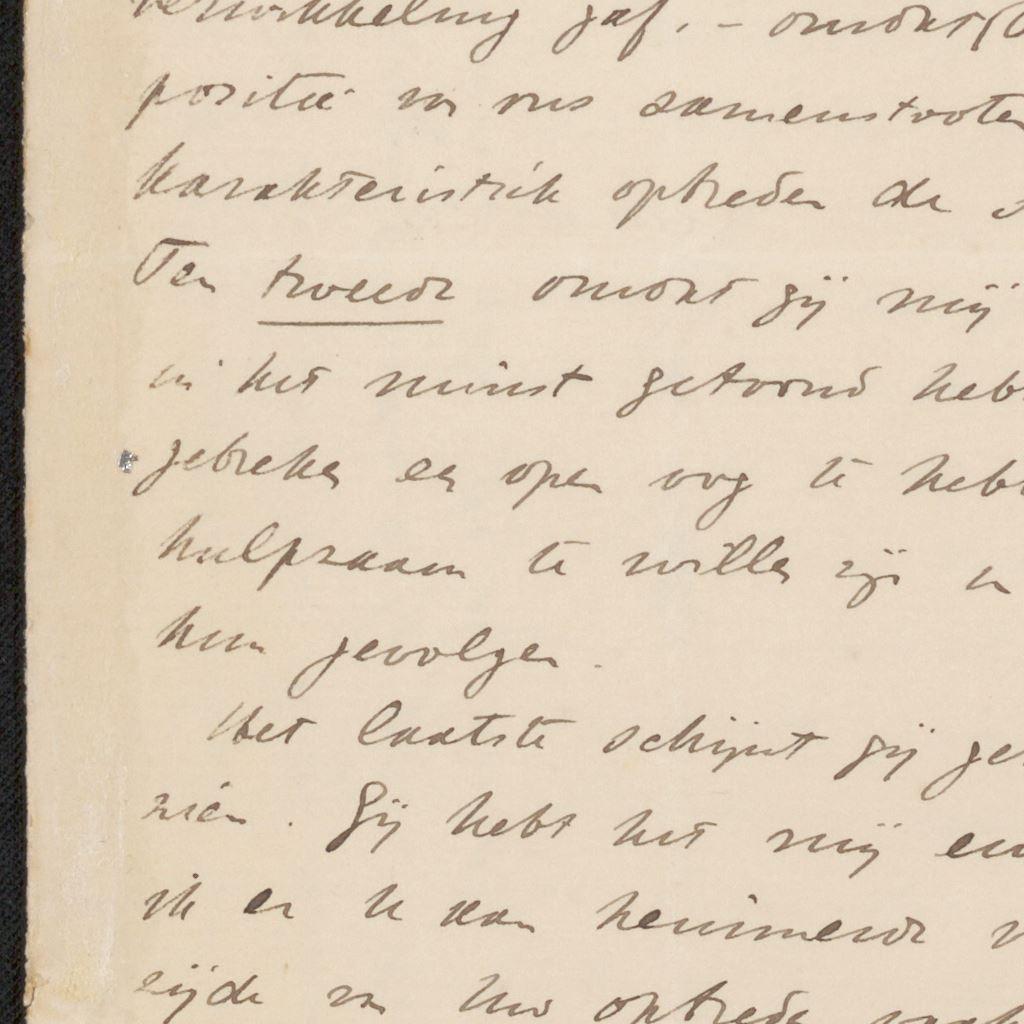 verwikkeling gaf. – omdat
positie in ons samenstooten
karakteristiek optreden de
Ten tweede omdat gij mij
in het minst getoond hebt
gebreken een open oog te heb
hulpzaam te willen zijn in
hun gevolgen.
Het laatste schijnt gij
zien. Gij hebt het mij
ik er u aan herinnerde
zijde van Uw optreden